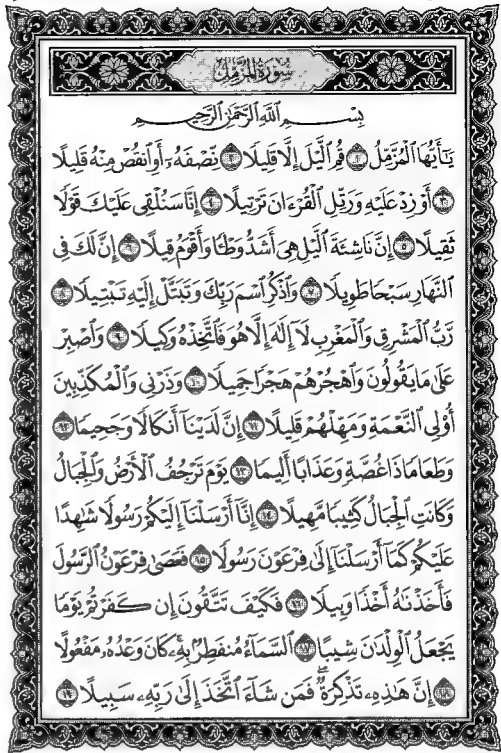 سُورَةُ المُزَّمِّل
بِسْمِ اللَّهِ الرَّحْمَٰنِ الرَّحِيمِ
يَٰٓأَيُّهَا ٱلْمُزَّمِّلُ ١ قُمِ ٱلَّيْلَ إِلَّا قَلِيلًا ٢ نِّصْفَهُۥٓ أَوِ ٱنقُصْ مِنْهُ قَلِيلًا
٣ أَوْ زِدْ عَلَيْهِ وَرَتِّلِ ٱلْقُرْءَانَ تَرْتِيلًا ٤ إِنَّا سَنُلْقِى عَلَيْكَ قَوْلًا
ثَقِيلًا ٥ إِنَّ نَاشِئَةَ ٱلَّيْلِ هِىَ أَشَدُّ وَطْـًٔا وَأَقْوَمُ قِيلًا ٦ إِنَّ لَكَ فِى
ٱلنَّهَارِ سَبْحًا طَوِيلًا ٧ وَٱذْكُرِ ٱسْمَ رَبِّكَ وَتَبَتَّلْ إِلَيْهِ تَبْتِيلًا ٨
رَّبُّ ٱلْمَشْرِقِ وَٱلْمَغْرِبِ لَآ إِلَٰهَ إِلَّا هُوَ فَٱتَّخِذْهُ وَكِيلًا ٩ وَٱصْبِرْ
عَلَىٰ مَا يَقُولُونَ وَٱهْجُرْهُمْ هَجْرًا جَمِيلًا ١٠ وَذَرْنِى وَٱلْمُكَذِّبِينَ
أُو۟لِى ٱلنَّعْمَةِ وَمَهِّلْهُمْ قَلِيلًا ١١ إِنَّ لَدَيْنَآ أَنكَالًا وَجَحِيمًا ١٢
وَطَعَامًا ذَا غُصَّةٍ وَعَذَابًا أَلِيمًا ١٣ يَوْمَ تَرْجُفُ ٱلْأَرْضُ وَٱلْجِبَالُ
وَكَانَتِ ٱلْجِبَالُ كَثِيبًا مَّهِيلًا ١٤ إِنَّآ أَرْسَلْنَآ إِلَيْكُمْ رَسُولًا شَٰهِدًا
عَلَيْكُمْ كَمَآ أَرْسَلْنَآ إِلَىٰ فِرْعَوْنَ رَسُولًا ١٥ فَعَصَىٰ فِرْعَوْنُ ٱلرَّسُولَ
فَأَخَذْنَٰهُ أَخْذًا وَبِيلًا ١٦ فَكَيْفَ تَتَّقُونَ إِن كَفَرْتُمْ يَوْمًا
يَجْعَلُ ٱلْوِلْدَٰنَ شِيبًا ١٧ ٱلسَّمَآءُ مُنفَطِرٌۢ بِهِۦ ۚ كَانَ وَعْدُهُۥ مَفْعُولًا
١٨ إِنَّ هَٰذِهِۦ تَذْكِرَةٌ ۖ فَمَن شَآءَ ٱتَّخَذَ إِلَىٰ رَبِّهِۦ سَبِيلًا ١٩